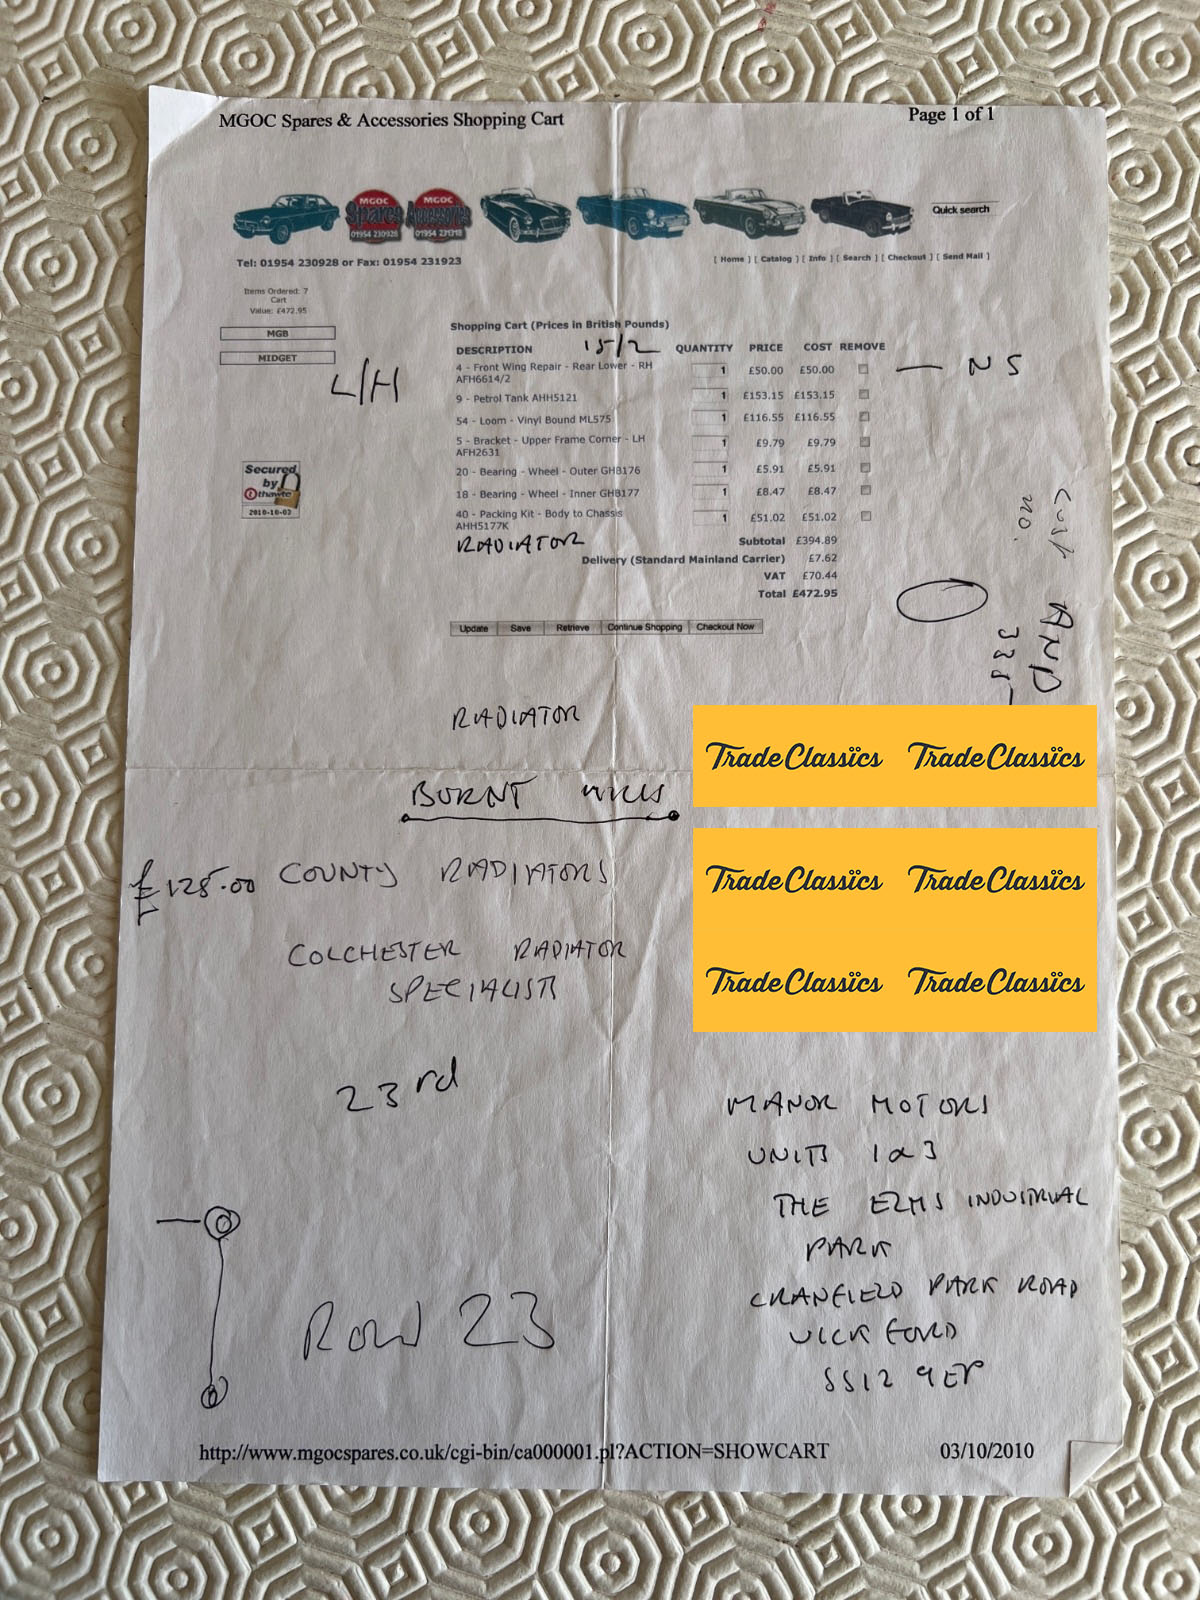 MGOC Spares & Accessories Shopping Cart
Page 1 of 1
MGOC Spares 01954 230928
MGOC Accessories 01954 231318
Quick search
Tel: 01954 230928 or Fax: 01954 231923
[ Home ] [ Catalog ] [ Info ] [ Search ] [ Checkout ] [ Send Mail ]
Items Ordered: 7
Cart
Value: £472.95
MGB
MIDGET
L/H
Secured
by
thawte
2010-10-03
Shopping Cart (Prices in British Pounds)
15/2
DESCRIPTION QUANTITY PRICE COST REMOVE
4 - Front Wing Repair - Rear Lower - RH 1 £50.00 £50.00
AFH6614/2
NS
9 - Petrol Tank AHH5121 1 £153.15 £153.15
54 - Loom - Vinyl Bound ML575 1 £116.55 £116.55
5 - Bracket - Upper Frame Corner - LH 1 £9.79 £9.79
AFH2631
20 - Bearing - Wheel - Outer GHB176 1 £5.91 £5.91
18 - Bearing - Wheel - Inner GHB177 1 £8.47 £8.47
40 - Packing Kit - Body to Chassis 1 £51.02 £51.02
AHH5177K
RADIATOR
Subtotal £394.89
Delivery (Standard Mainland Carrier) £7.62
VAT £70.44
Total £472.95
Update Save Retrieve Continue Shopping Checkout Now
CUST
NO.
AND
335
RADIATOR
Trade Classics Trade Classics
BURNT MILLS
£125.00 COUNTY RADIATORS
Trade Classics Trade Classics
COLCHESTER RADIATOR
SPECIALISTS
Trade Classics Trade Classics
23rd
MANOR MOTORS
UNITS 1 & 3
THE ELMS INDUSTRIAL
PARK
CRANFIELD PARK ROAD
WICKFORD
SS12 9EP
ROW 23
http://www.mgocspares.co.uk/cgi-bin/ca000001.pl?ACTION=SHOWCART
03/10/2010